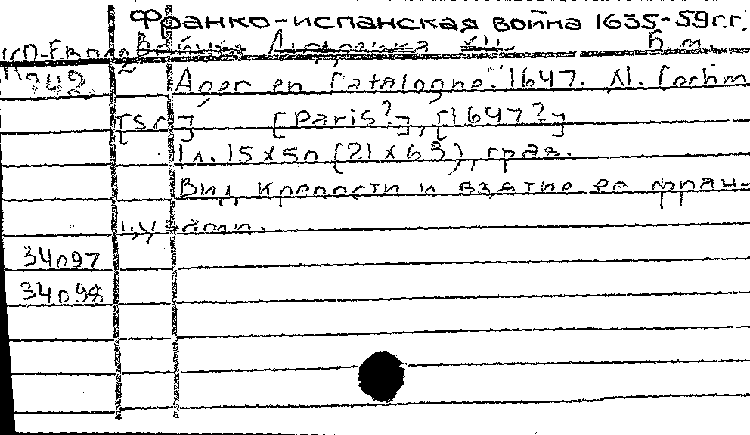 Франко-испанская война 1635-59г.г.
К 742. Ager en Catalogne. 1647. N. Cochin
[sc] [Paris?], [1647?]
1 л. 15x50 (21x63), грав.
Вид крепости и взятие ее фран-
цузами.
34097
34098